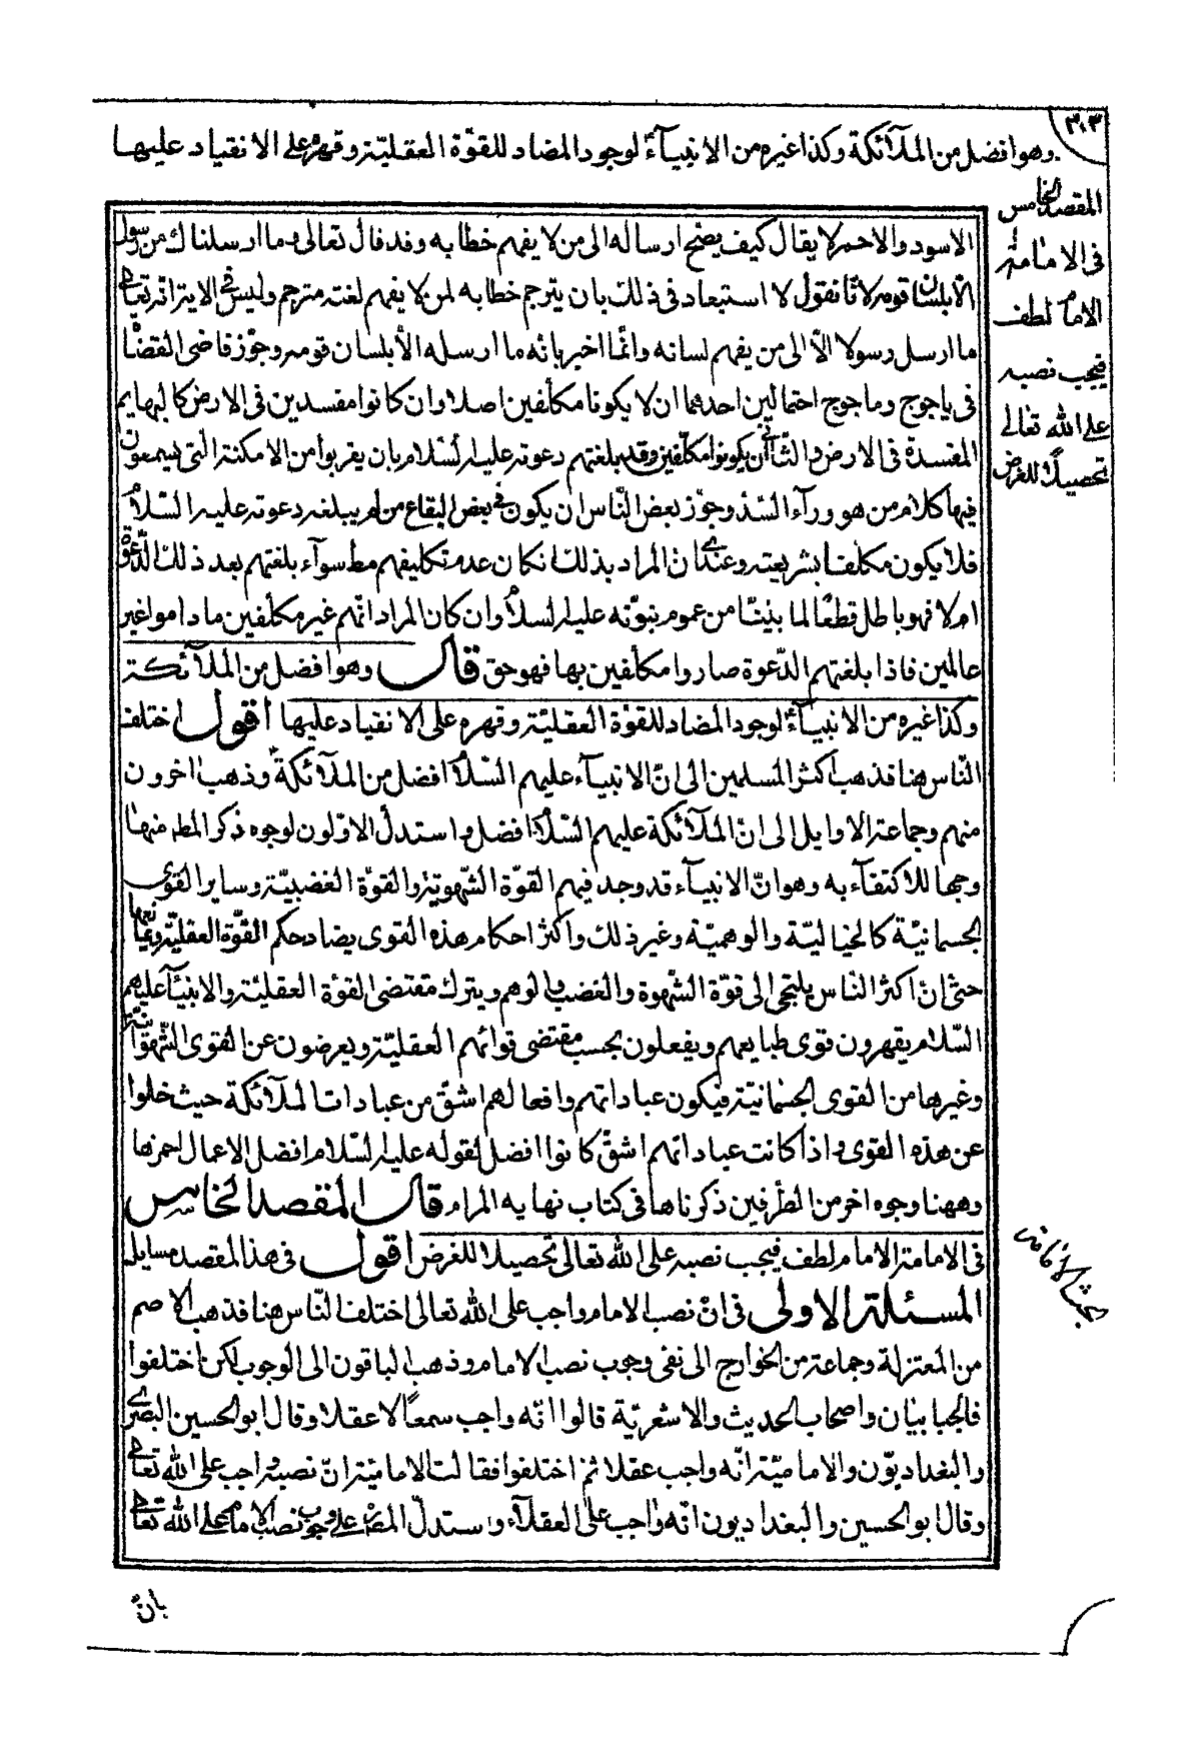 ٢٠٣
وهو افضل من الملآئكة وكذا غيره من الانبيآء لوجود المضاد للقوّة العقليّة وقهره على الانقياد عليها
المقصد الخامس
فى الامامة
الامام لطف
فيجب نصبه
على الله تعالى
تحصيلًا للغرض
الاسود والاحمر لا يقال كيف يصح ارساله الى من لا يفهم خطابه وقد قال تعالى وما ارسلناك من رسول
الّا بلسان قومه لانّا نقول لا استبعاد فى ذلك بان يترجم خطابه لمن لا يفهم لغته مترجم وليس فى الاية انّه تعالى
ما ارسل رسولا الّا الى من يفهم لسانه وانّما اخبر بانّه ما ارسله الّا بلسان قومه وجوّز قاضى القضاة
فى ياجوج وماجوج احتمالين احدهما ان لا يكونا مكلّفين اصلا وان كانوا مفسدين فى الارض كالبهايم
المفسدة فى الارض والثانى ان يكونوا مكلّفين وقد بلغتهم دعوته عليه السّلام بان يقربوا من الامكنة التى يسمعون
فيها كلام من هو ورآء السّد وجوّز بعض النّاس ان يكون فى بعض البقاع من لم يبلغه دعوته عليه السّلام
فلا يكون مكلّفا بشريعته وعندى ان المراد بذلك ان كان عدم تكليفهم مط سوآء بلغتهم بعد ذلك الدّعوة
ام لا فهو باطل قطعًا لما بيّنّا من عموم نبوّته عليه السلام وان كان المراد انّهم غير مكلّفين ما داموا غير
عالمين فاذا بلغتهم الدّعوة صاروا مكلّفين بها فهو حق قال وهو افضل من الملآئكة
وكذا غيره من الانبيآء لوجود المضاد للقوّة العقليّة وقهره على الانقياد عليها اقول اختلف
النّاس هنا فذهب اكثر المسلمين الى انّ الانبيآء عليهم السّلام افضل من الملآئكة وذهب اخرون
منهم وجماعة الاوايل الى انّ الملآئكة عليهم السّلام افضل واستدلّ الاوّلون لوجوه ذكر المط منها
وجها للاكتفآء به وهو انّ الانبيآء قد وجد فيهم القوّة الشّهويّة والقوّة الغضبيّة وساير القوى
الجسمانيّة كالخياليّة والوهميّة وغير ذلك واكثر احكام هذه القوى يضاد حكم القوّة العقليّة ويمانعها
حتّى انّ اكثر النّاس يلتجى الى قوّة الشّهوة والغضب والوهم ويترك مقتضى القوّة العقليّة والانبيآء عليهم
السّلام يقهرون قوى طبايعهم ويفعلون بحسب مقتضى قوائهم العقليّة ويعرضون عن القوى الشّهوانيّة
وغيرها من القوى الجسمانيّة فيكون عباداتهم وافعالهم اشقّ من عبادات الملآئكة حيث خلوا
عن هذه القوى واذا كانت عباداتهم اشقّ كانوا افضل لقوله عليه السّلام افضل الاعمال احمزها
وههنا وجوه اخر من الطرفين ذكرناها فى كتاب نهايه المرام قال المقصد الخامس
فى الامامة الامام لطف فيجب نصبه على الله تعالى تحصيلا للغرض اقول فى هذا المقصد مسايل
المسئلة الاولى فى انّ نصب الامام واجب على الله تعالى اختلف النّاس هنا فذهب الاصم
من المعتزلة وجماعة من الخوارج الى نفى وجوب نصب الامام وذهب الباقون الى الوجوب لكن اختلفوا
فالجبائيان واصحاب الحديث والاشعريّة قالوا انّه واجب سمعًا لا عقلا وقال ابو الحسين البصرى
والبغداديّون والاماميّة انّه واجب عقلا ثم اختلفوا فقالت الاماميّة انّ نصبه واجب على الله تعالى
وقال ابو الحسين والبغداديون انّه واجب على العقلآء واستدلّ المص على وجوب نصب الامام على الله تعالى
بحث الامامة
بانّ